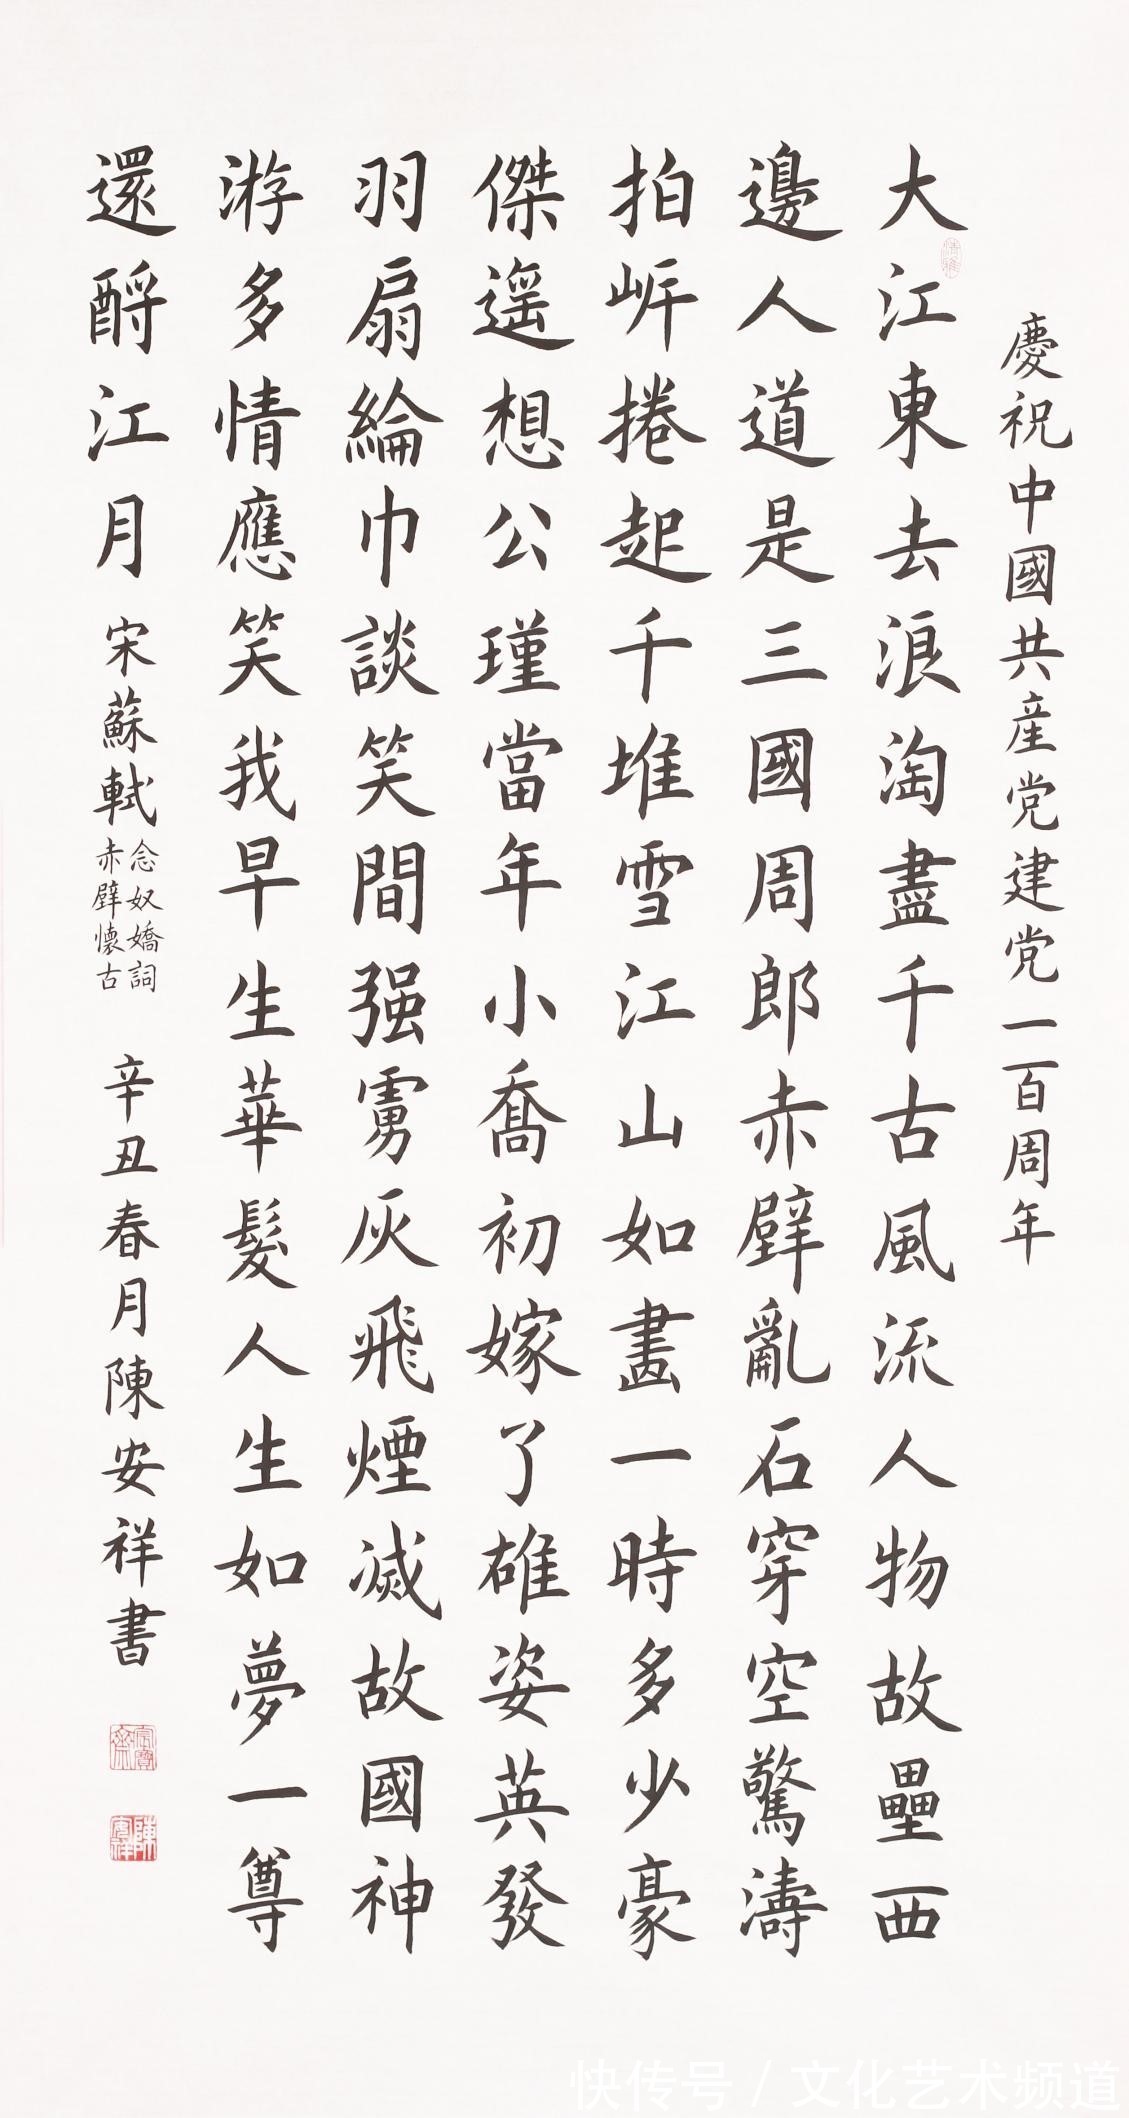 慶祝中國共産党建党一百周年
大江東去浪淘盡千古風流人物故壘西
邊人道是三國周郎赤壁亂石穿空驚濤
拍岍捲起千堆雪江山如畫一時多少豪
傑遥想公瑾當年小喬初嫁了雄姿英發
羽扇綸巾談笑間强虜灰飛煙滅故國神
游多情應笑我早生華髮人生如夢一尊
還酹江月 宋蘇軾
念奴嬌詞
赤壁懷古
辛丑春月陳安祥書
陳安祥
快传号 / 文化艺术频道